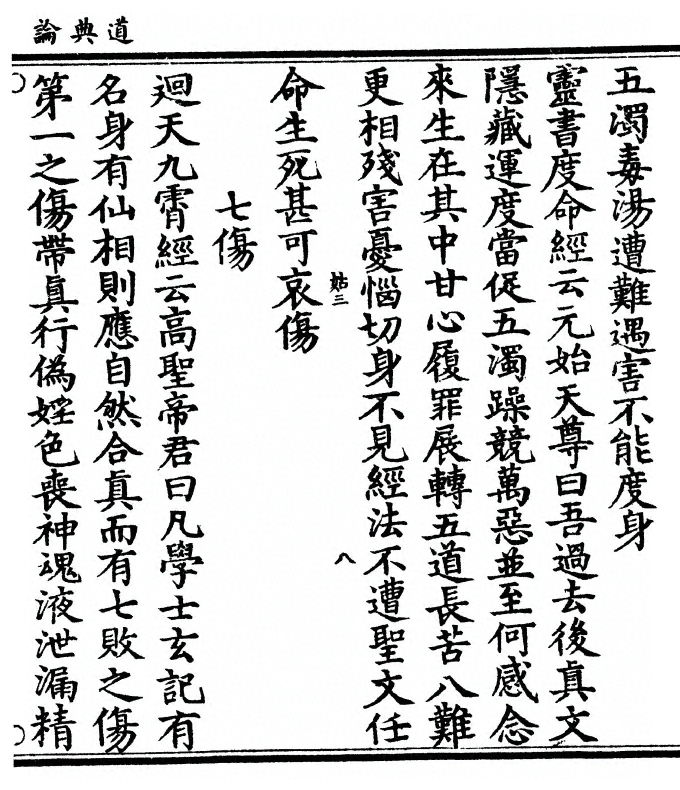 道典論
五濁毒湯遭難遇害不能度身
靈書度命經云元始天尊曰吾過去後真文
隱藏運度當促五濁躁競萬惡並至何感念
來生在其中甘心履罪展轉五道長苦八難
更相殘害憂惱切身不見經法不遭聖文任
姑三
八
命生死甚可哀傷
七傷
迴天九霄經云高聖帝君曰凡學士玄記有
名身有仙相則應自然合真而有七敗之傷
第一之傷帶真行偽婬色喪神魂液泄漏精